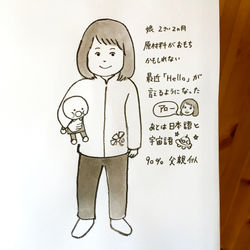 娘 2才2ヵ月
原材料がおもち
かもしれない
最近「Hello」が
言るようになった
アロー
あとは日本語と
宇宙語
90% 父親似